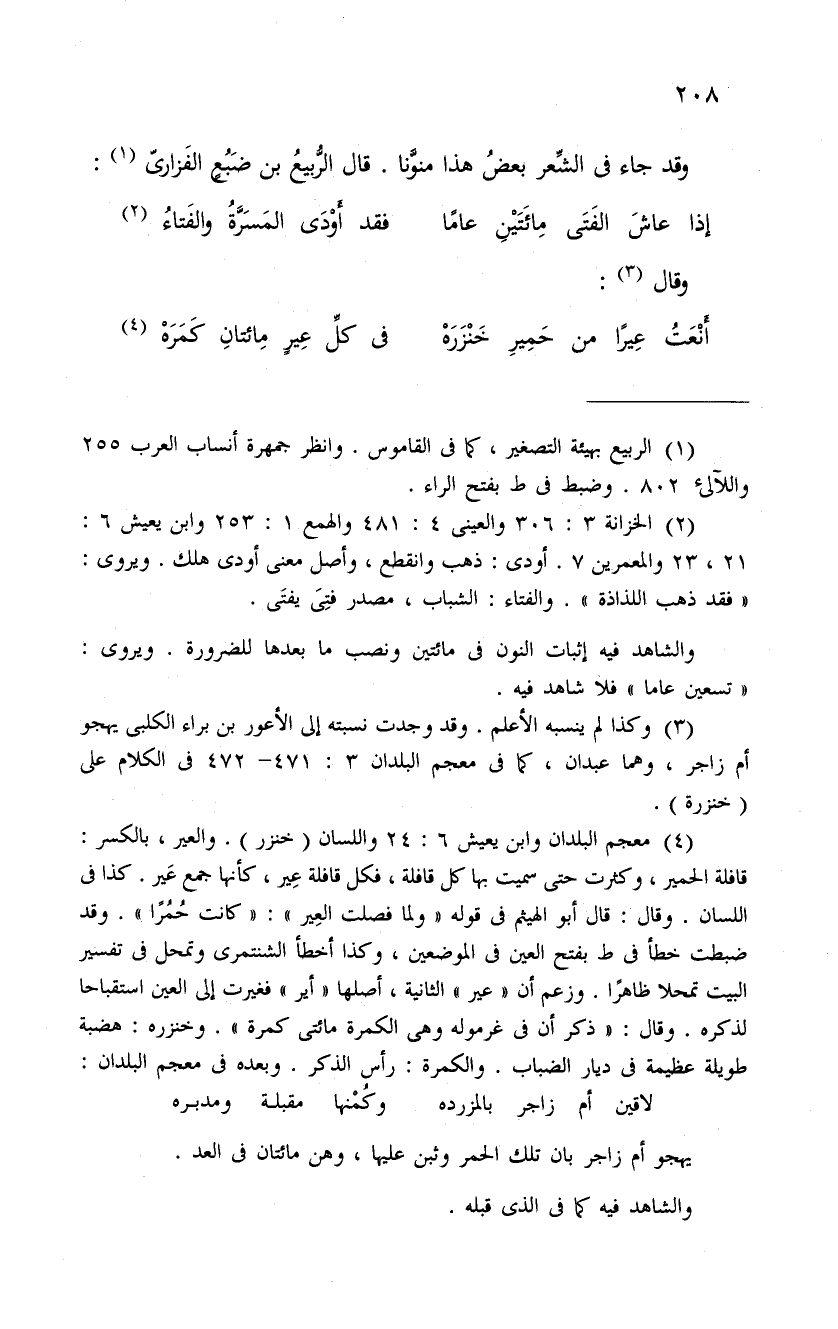 ٢٠٨
وقد جاء فى الشِّعر بعضُ هذا منوَّنا . قال الرُّبيعُ بن ضَبُعٍ الفَزارىّ (١) :
إذا عاشَ الفَتَى مِائَتَيْنِ عامًا فقد أَوْدَى المَسَرَّةُ والفَتاءُ (٢)
وقال (٣) :
أَنْعَتُ عِيرًا من حَمِيرِ خَنْزَرَهْ فى كلِّ عِيرٍ مِائتانِ كَمَرَهْ (٤)
(١) الربيع بهيئة التصغير ، كما فى القاموس . وانظر جمهرة أنساب العرب ٢٥٥
واللآلئ ٨٠٢ . وضبط فى ط بفتح الراء .
(٢) الخزانة ٣ : ٣٠٦ والعينى ٤ : ٤٨١ والهمع ١ : ٢٥٣ وابن يعيش ٦ :
٢١ ، ٢٣ والمعمرين ٧ . أودى : ذهب وانقطع ، وأصل معنى أودى هلك . ويروى :
« فقد ذهب اللذاذة » . والفتاء : الشباب ، مصدر فتِىَ يفتَى .
والشاهد فيه إثبات النون فى مائتين ونصب ما بعدها للضرورة . ويروى :
« تسعين عاما » فلا شاهد فيه .
(٣) وكذا لم ينسبه الأعلم . وقد وجدت نسبته إلى الأعور بن براء الكلبى يهجو
أم زاجر ، وهما عبدان ، كما فى معجم البلدان ٣ : ٤٧١– ٤٧٢ فى الكلام على
( خنزرة ) .
(٤) معجم البلدان وابن يعيش ٦ : ٢٤ واللسان ( خنزر ) . والعير ، بالكسر :
قافلة الحمير ، وكثرت حتى سميت بها كل قافلة ، فكل قافلة عِير ، كأنها جمع عَير . كذا فى
اللسان . وقال : قال أبو الهيثم فى قوله « ولما فصلت العِير » : « كانت حُمُرًا » . وقد
ضبطت خطأ فى ط بفتح العين فى الموضعين ، وكذا أخطأ الشنتمرى وتمحل فى تفسير
البيت تمحلا ظاهرًا . وزعم أن « عير » الثانية ، أصلها « أير » فغيرت إلى العين استقباحا
لذكره . وقال : « ذكر أن فى غرموله وهى الكمرة مائتى كمرة » . وخنزره : هضبة
طويلة عظيمة فى ديار الضباب . والكمرة : رأس الذكر . وبعده فى معجم البلدان :
لاقين أم زاجر بالمزرده وكُمْنها مقبلة ومدبره
يهجو أم زاجر بان تلك الحمر وثبن عليها ، وهن مائتان فى العد .
والشاهد فيه كما فى الذى قبله .